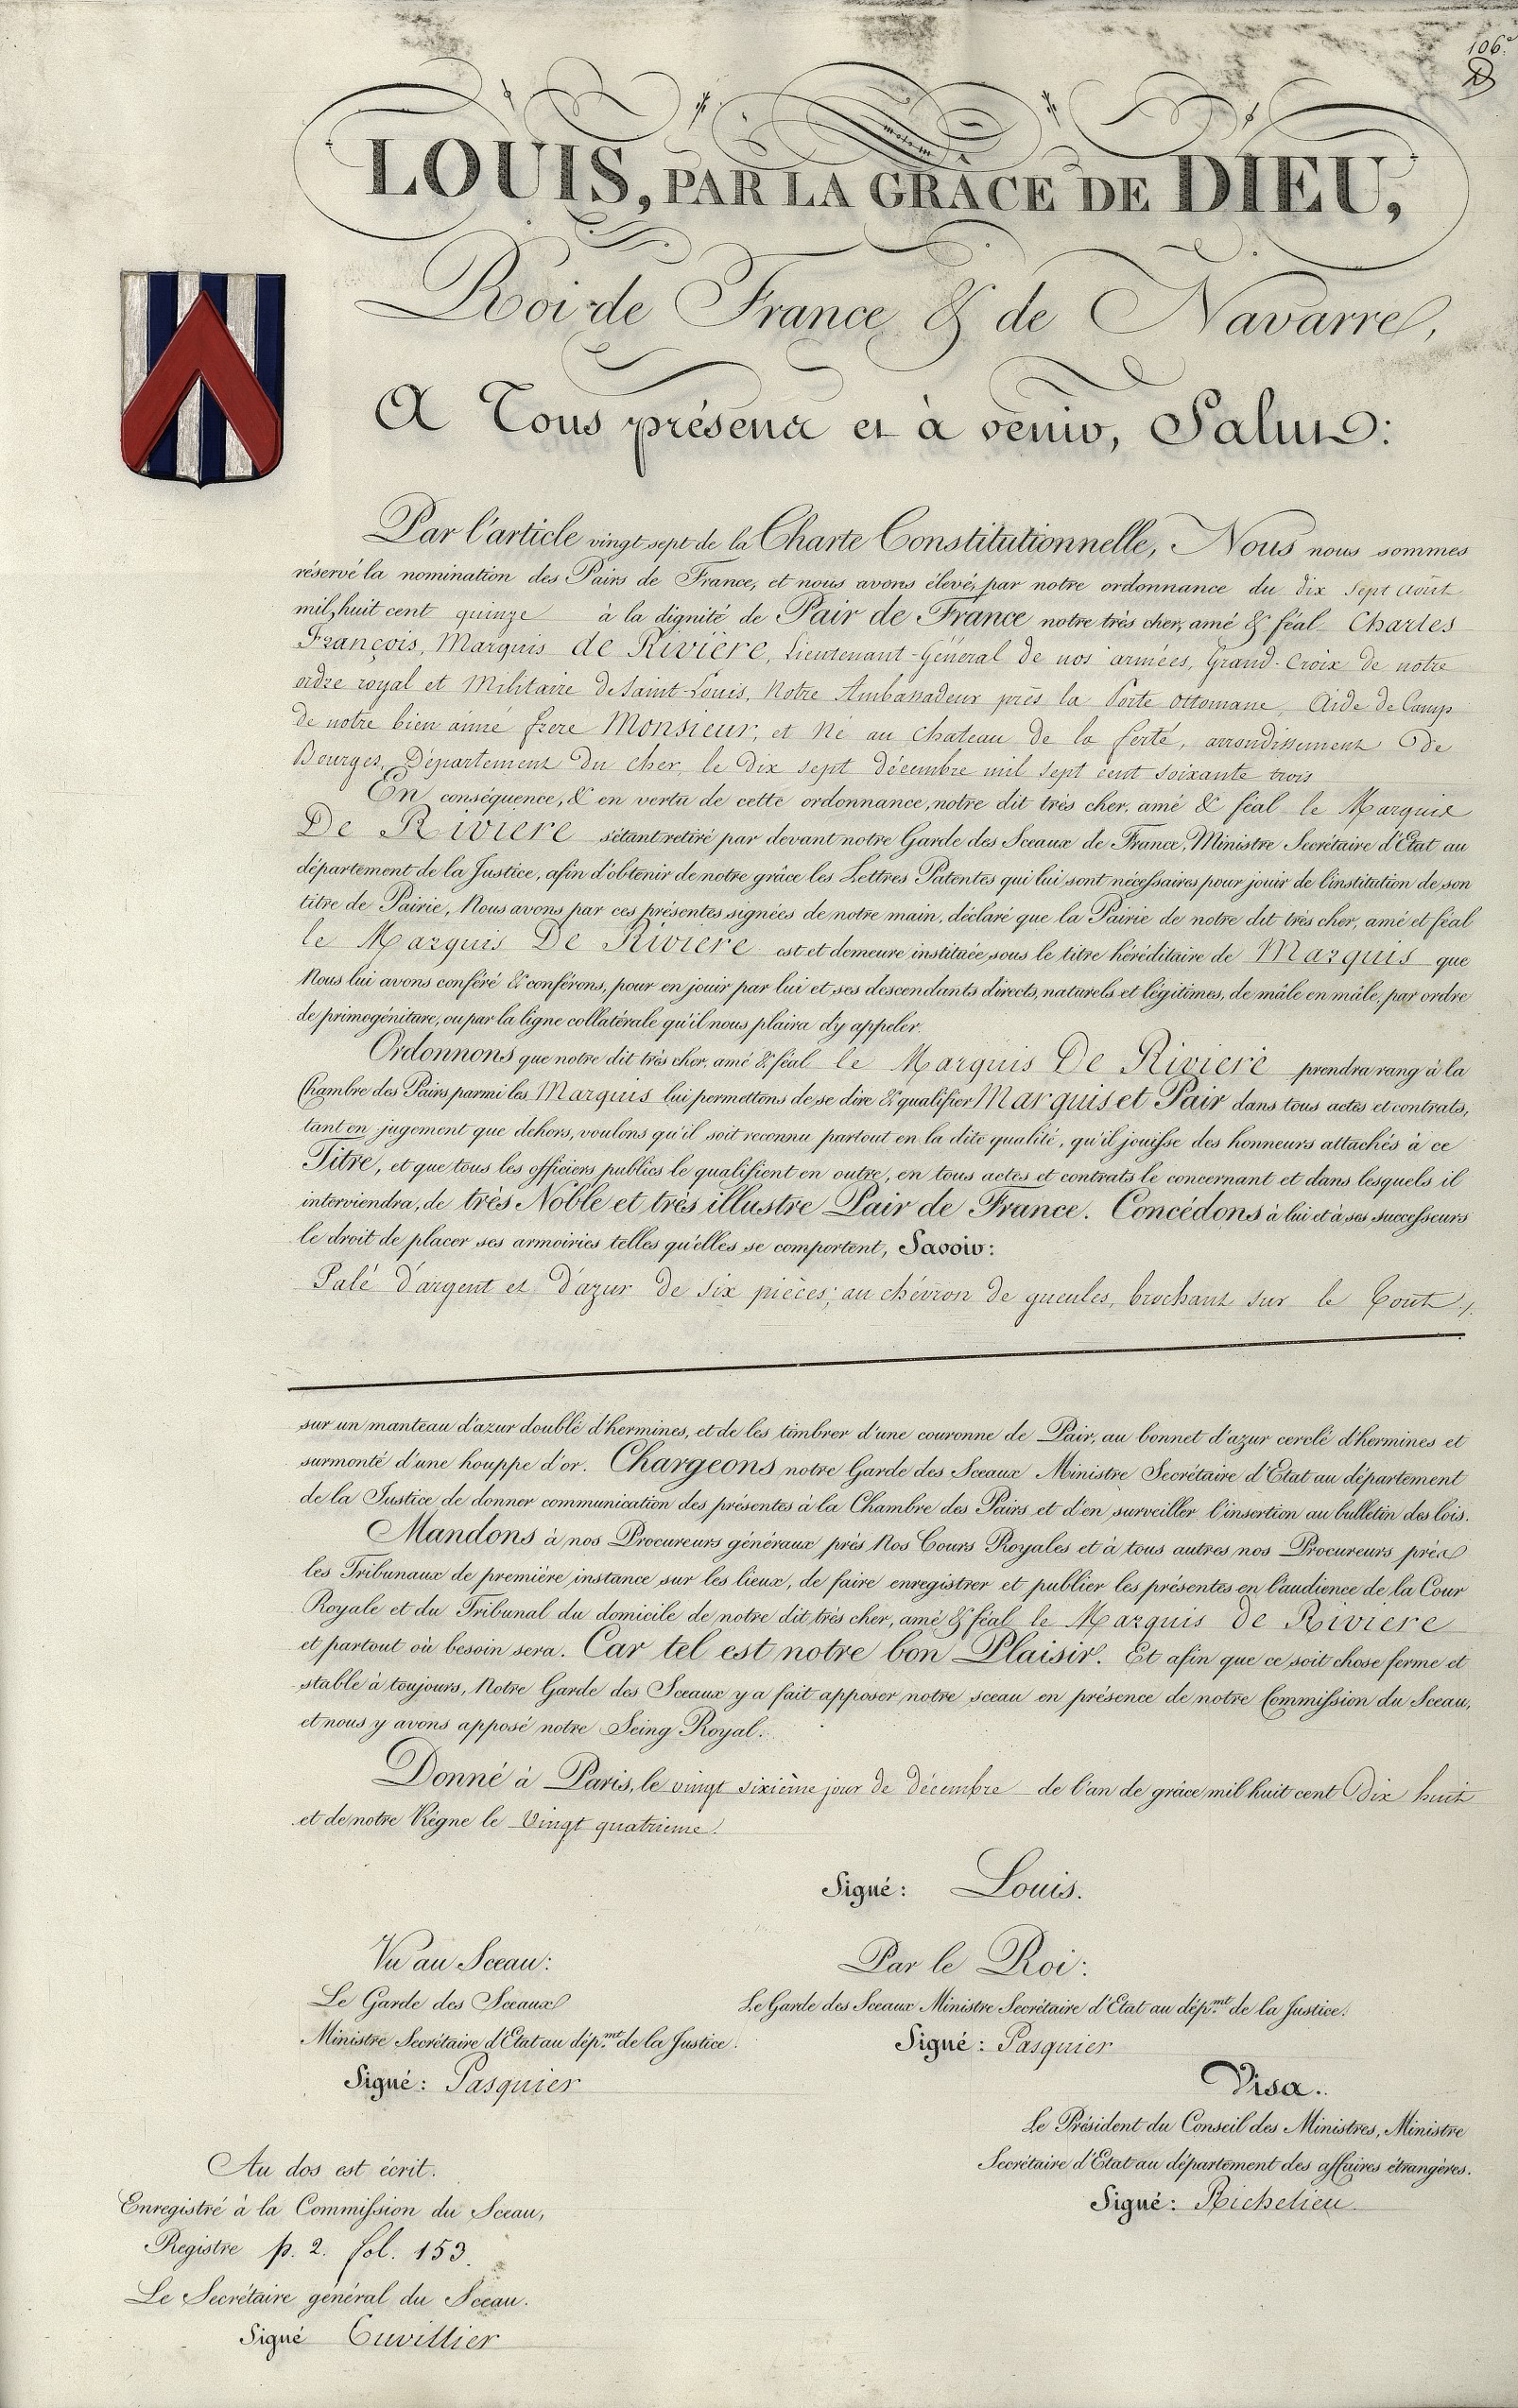 106.e
LOUIS, PAR LA GRÂCE DE DIEU,
Roi de France & de Navarre,
A Tous présens et à venir, Salut:
Par l'article vingt sept de la Charte Constitutionnelle, Nous nous sommes
réservé la nomination des Pairs de France, et nous avons élevé, par notre ordonnance du dix sept août
mil huit cent quinze à la dignité de Pair de France notre très cher, amé & féal Charles
François, Marquis de Rivière, Lieutenant-Général de nos armées, Grand-Croix de notre
ordre royal et Militaire de Saint-Louis, Notre Ambassadeur près la Porte ottomane, Aide de Camp
de notre bien aimé frere Monsieur, et Né au chateau de la ferté, arrondissement De
Bourges, Département du cher, le dix sept décembre mil sept cent soixante trois
En conséquence, & en vertu de cette ordonnance, notre dit très cher, amé & féal le Marquis
De Riviere s'étant retiré par devant notre Garde des Sceaux de France, Ministre Secrétaire d'Etat au
département de la Justice, afin d'obtenir de notre grâce les Lettres Patentes qui lui sont nécessaires pour jouir de l'institution de son
titre de Pairie, Nous avons par ces présentes signées de notre main, déclaré que la Pairie de notre dit très cher, amé et féal
le Marquis De Riviere est et demeure instituée sous le titre héréditaire de Marquis que
Nous lui avons conféré & conférons, pour en jouir par lui et ses descendants directs, naturels et légitimes, de mâle en mâle, par ordre
de primogéniture, ou par la ligne collatérale qu'il nous plaira d'y appeler.
Ordonnons que notre dit très cher, amé & féal le Marquis De Riviere prendra rang à la
Chambre des Pairs parmi les Marquis lui permettons de se dire & qualifier Marquis et Pair dans tous actes et contrats,
tant en jugement que dehors, voulons qu'il soit reconnu partout en la dite qualité, qu'il jouisse des honneurs attachés à ce
Titre, et que tous les officiers publics le qualifient en outre, en tous actes et contrats le concernant et dans lesquels il
interviendra, de très Noble et très illustre Pair de France. Concédons à lui et à ses successeurs
le droit de placer ses armoiries telles qu'elles se comportent, Savoir:
Palé d'argent et d'azur de six pièces; au chévron de gueules, brochant sur le Tout
sur un manteau d'azur doublé d'hermines, et de les timbrer d'une couronne de Pair, au bonnet d'azur cerclé d'hermines et
surmonté d'une houppe d'or. Chargeons notre Garde des Sceaux Ministre Secrétaire d'Etat au département
de la Justice de donner communication des présentes à la Chambre des Pairs et d'en surveiller l'insertion au bulletin des lois.
Mandons à nos Procureurs généraux près Nos Cours Royales et à tous autres nos Procureurs près
les Tribunaux de première instance sur les lieux, de faire enregistrer et publier les présentes en l'audience de la Cour
Royale et du Tribunal du domicile de notre dit très cher, amé & féal le Marquis de Riviere
et partout où besoin sera. Car tel est notre bon Plaisir. Et afin que ce soit chose ferme et
stable à toujours, Notre Garde des Sceaux y a fait apposer notre sceau en présence de notre Commission du Sceau,
et nous y avons apposé notre Seing Royal.
Donné à Paris, le vingt sixième jour de décembre de l'an de grâce mil huit cent Dix huit
et de notre Règne le Vingt quatrieme.
Signé: Louis.
Vu au Sceau:
Le Garde des Sceaux
Ministre Secrétaire d'Etat au dép.mt de la Justice.
Signé: Pasquier
Par le Roi:
Le Garde des Sceaux Ministre Secrétaire d'Etat au dép.mt de la Justice.
Signé: Pasquier
Visa.
Le Président du Conseil des Ministres, Ministre
Secrétaire d'Etat au département des affaires étrangères.
Signé: Richelieu
Au dos est écrit.
Enregistré à la Commission du Sceau,
Registre p. 2. fol. 153.
Le Secrétaire général du Sceau.
Signé Cuvillier